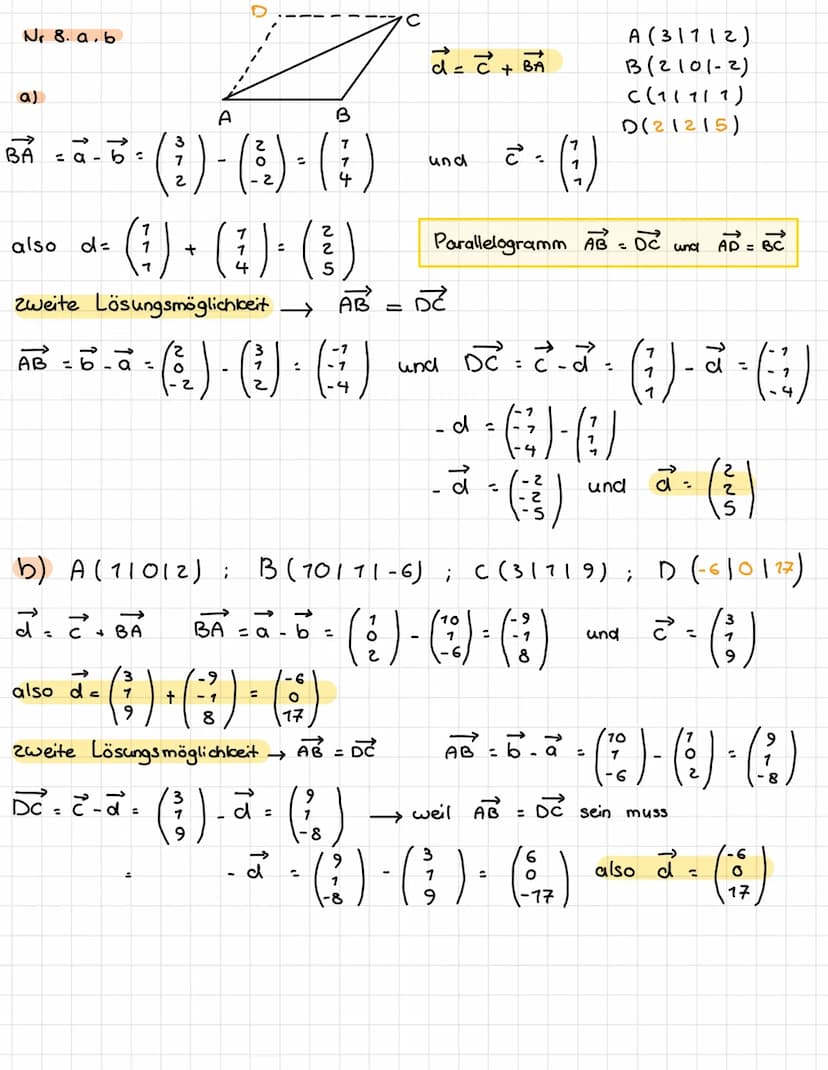 Nr 8. a.b
D
C
A
B
d⃗ = c⃗ + BA⃗
A (3|1|2)
B (2|0|-2)
C (1|1|1)
D (2|2|5)
a)
BA⃗ = a⃗ - b⃗ = (3 1 2) - (2 0 -2) = (1 1 4) und c⃗ = (1 1 1)
also d = (1 1 1) + (1 1 4) = (2 2 5)
Parallelogramm AB⃗ = DC⃗ und AD⃗ = BC⃗
zweite Lösungsmöglichkeit → AB⃗ = DC⃗
AB⃗ = b⃗ - a⃗ = (2 0 -2) - (3 1 2) = (-1 -1 -4) und DC⃗ = c⃗ - d⃗ = (1 1 1) - d⃗ = (-1 -1 -4)
- d = (-1 -1 -4) - (1 1 1)
- d⃗ = (-2 -2 -5) und d⃗ = (2 2 5)
b) A (1|0|2) ; B (10|1|-6) ; C (3|1|9) ; D (-6|0|17)
d⃗ = c⃗ + BA⃗ BA⃗ = a⃗ - b⃗ = (1 0 2) - (10 1 -6) = (-9 -1 8) und c⃗ = (3 1 9)
also d⃗ = (3 1 9) + (-9 -1 8) = (-6 0 17)
zweite Lösungsmöglichkeit → AB⃗ = DC⃗ AB⃗ = b⃗ - a⃗ = (10 1 -6) - (1 0 2) = (9 1 -8)
DC⃗ = c⃗ - d⃗ = (3 1 9) - d⃗ = (9 1 -8) → weil AB⃗ = DC⃗ sein muss
= - d⃗ = (9 1 -8) - (3 1 9) = (6 0 -17) also d⃗ = (-6 0 17)